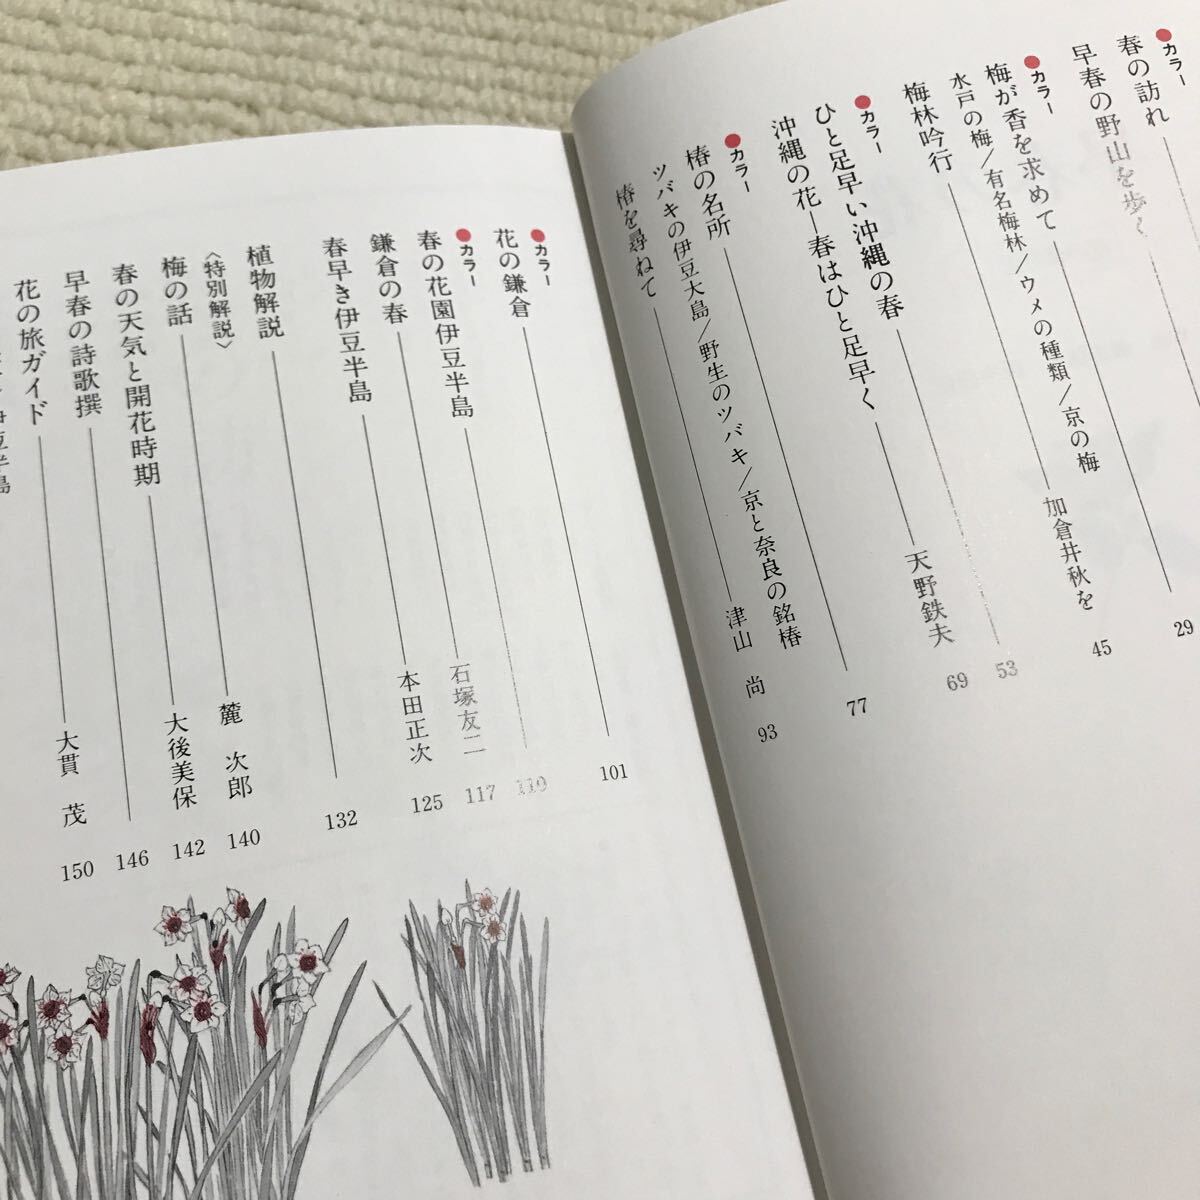 ●カラー
春の訪れ
早春の野山を歩く 29
●カラー
梅が香を求めて 45
水戸の梅/有名梅林/ウメの種類/京の梅
梅林吟行 加倉井秋を 53
●カラー
ひと足早い沖縄の春 69
沖縄の花―春はひと足早く 天野鉄夫 77
●カラー
椿の名所
ツバキの伊豆大島/野生のツバキ/京と奈良の銘椿
椿を尋ねて 津山 尚 93
●カラー
花の鎌倉 101
●カラー
春の花園伊豆半島 110
鎌倉の春 石塚友二 117
春早き伊豆半島 本田正次 125
植物解説 132
〈特別解説〉
梅の話 麓 次郎 140
春の天気と開花時期 大後美保 142
早春の詩歌撰 146
花の旅ガイド 大貫 茂 150
伊豆半島